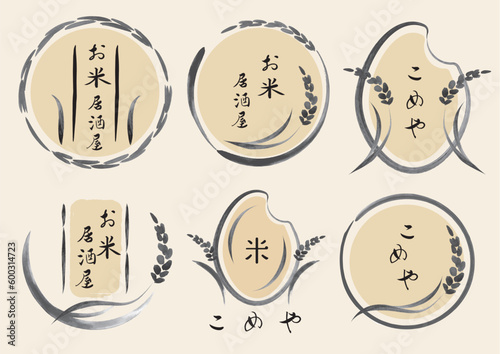 お米
居酒屋
お米
居酒屋
こめや
お米
居酒屋
米
こめや
こめや
Adobe Stock | #600314723